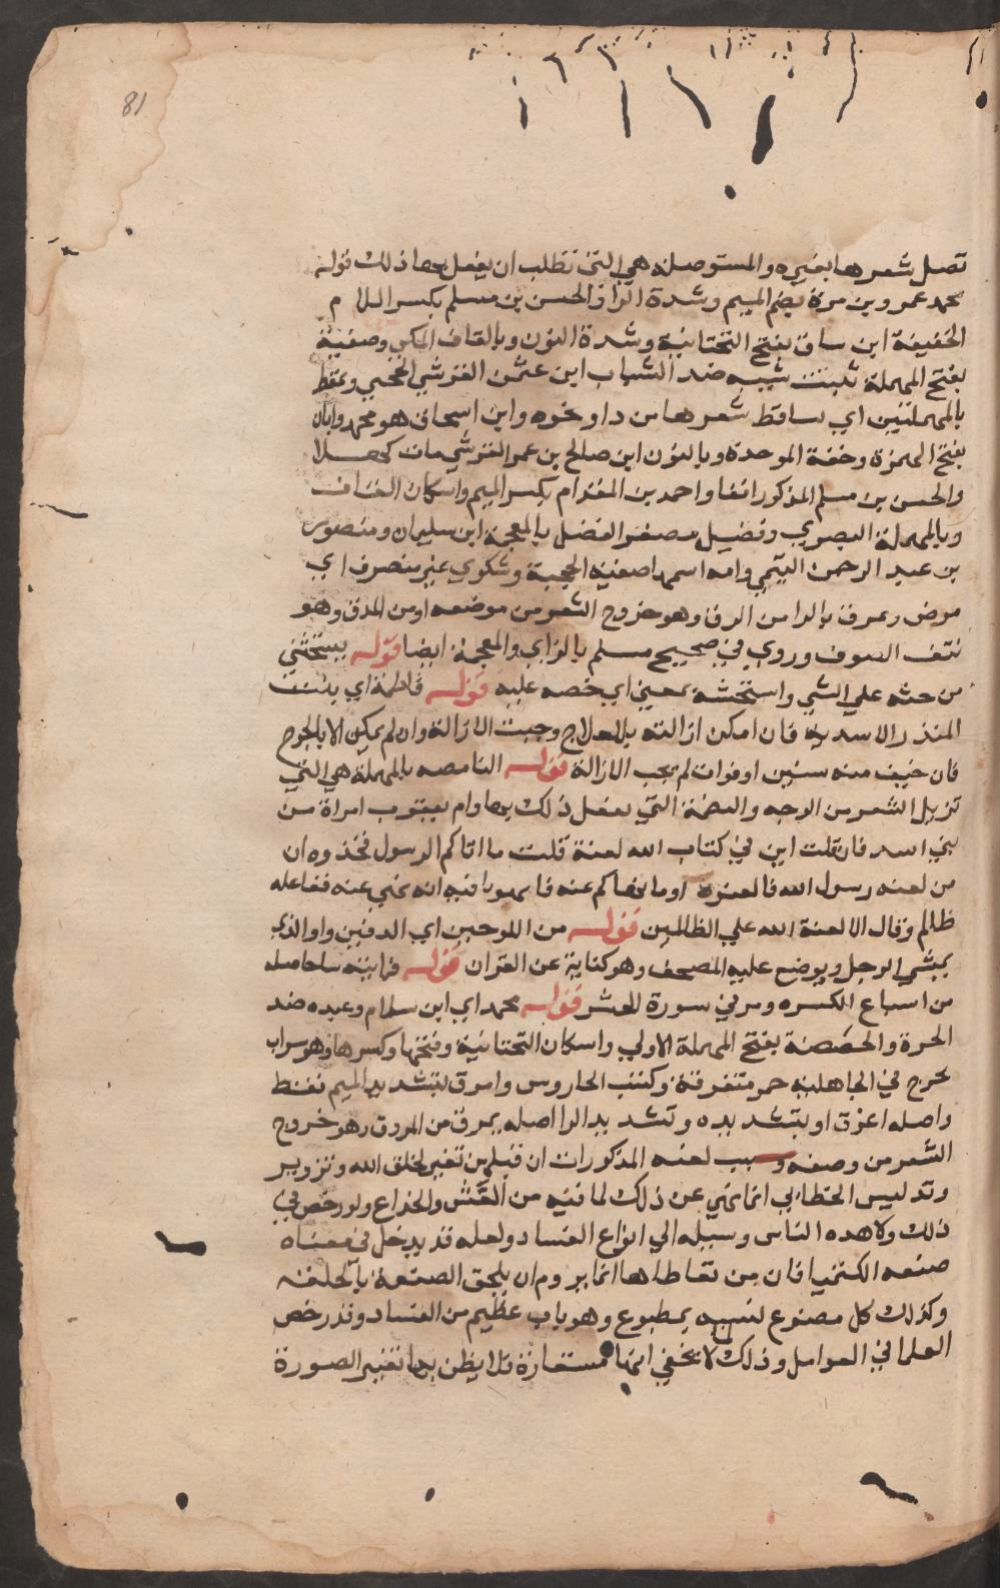 81
تصل شعرها بغيره والمستوصلة هي التي تطلب ان يفعل بها ذلك قوله
محمد عمرو بن مرة بضم الميم وشدة الرا والحسن بن مسلم بكسر اللام
الخفيفة ابن يناق بفتح التحتانية وشدة النون وبالقاف المكي وصفية
بفتح المهملة بنت شيبه ضد الشباب ابن عثمن القرشي الحجبي وتمعط
بالمهملتين اي تساقط شعرها من دا ونحوه وابن اسحاق هو محمد وابان
بفتح الهمزة وخفة الموحدة وبالنون ابن صالح بن عمر القرشي مات كهلا
والحسن بن مسلم المذكور انفا واحمد بن المقدام بكسر الميم واسكان القاف
وبالمهملة البصري وفضيل مصغر الفضل بالمعجمة ابن سليمان ومنصور
بن عبد الرحمن التيمي وامه اسمها صفية الحجبية وشكوي غير منصرف اي
مرض وتمرق بالرا من المرق وهو خروج الشعر من موضعه او من المرق وهو
نتف الصوف وروي في صحيح مسلم بالزاي والمعجمة ايضا قوله يستحثني
من حثه علي الشي واستحثه بمعني اي حضه عليه قوله فاطمة اي بنت
المنذر الاسدية فان امكن ازالته بالعلاج وجبت الازالة وان لم يمكن الا بالجرح
فان خيف منه شين او فوات لم تجب الازالة قوله النامصه بالمهملة هي التي
تزيل الشعر من الوجه والمتنمصة التي تفعل ذلك بها وام يعقوب امراة من
بني اسد فان قلت اين في كتاب الله لعنة قلت ما اتاكم الرسول فخذوه ان
من لعنه رسول الله فالعنوه او ما نهاكم عنه فانتهوا فيه انه نهي عنه ففاعله
ظالم وقال الا لعنة الله علي الظالمين قوله من اللوحين اي الدفتين او الذي
يسمي الرحل ويوضع عليه المصحف وهو كناية عن القران قوله قراتيه
من اشباع الكسره ومر في سورة الحشر قوله محمد اي ابن سلام وعبده ضد
الحرة والحصبة بفتح المهملة الاولي واسكان التحتانية وفتحها وكسرها وهو
تخرج في الجلد حمر متفرقة وامرق بتشديد الميم فقط
واصله او بتشديده وتشديد الرا اصله تمرق من المروق وهو خروج
الشعر من وصفه وسبب لعنه المذكورات ان فيهن تغيير لخلق الله وتزوير
وتدليس الخطابي انما نهي عن ذلك لما فيه من الغش والخداع ولو رخص في
ذلك وسيله الي انواع الفساد ولعله قد يدخل في معناه
صنعه الكيميا فان من تعاطاها انما يروم ان يلحق الصنعة بالخلقه
وكذلك كل مصنوع لشبيه بمطبوع وهو باب عظيم من الفساد وقد رخص
العلما في القرامل وذلك لا يخفي انها مستعارة فلا يظن بها تغيير الصورة